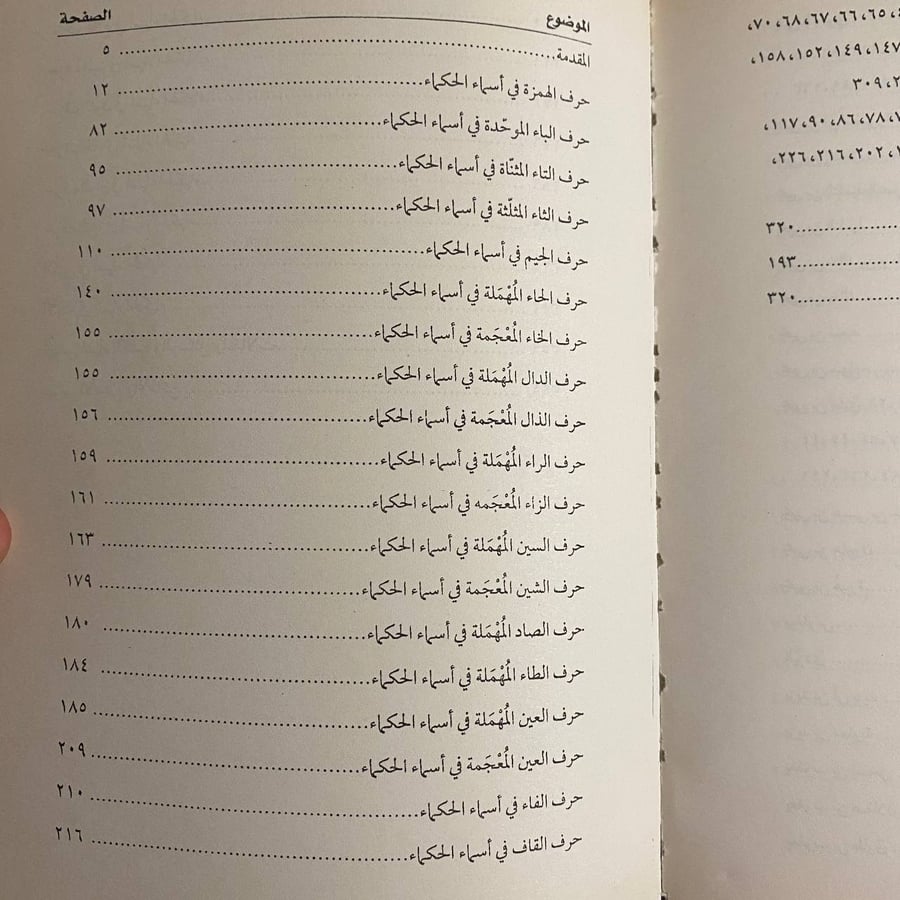 ٦٥، ٦٦، ٦٧، ٦٨، ٧٠،
١٤٧، ١٤٩، ١٥٢، ١٥٨،
٣٠٩
٧٨، ٨٦، ٩٠، ١١٧،
٢٠٢، ٢١٦، ٢٢٦،
٣٢٠
١٩٣
٣٢٠
الموضوع الصفحة
المقدمة ٥
حرف الهمزة في أسماء الحكماء ١٢
حرف الباء الموحّدة في أسماء الحكماء ٨٢
حرف التاء المثنّاة في أسماء الحكماء ٩٥
حرف الثاء المثلّثة في أسماء الحكماء ٩٧
حرف الجيم في أسماء الحكماء ١١٠
حرف الحاء المُهْمَلة في أسماء الحكماء ١٤٠
حرف الخاء المُعْجَمة في أسماء الحكماء ١٥٥
حرف الدال المُهْمَلة في أسماء الحكماء ١٥٥
حرف الذال المُعْجَمة في أسماء الحكماء ١٥٦
حرف الراء المُهْمَلة في أسماء الحكماء ١٥٩
حرف الزاء المُعْجَمه في أسماء الحكماء ١٦١
حرف السين المُهْمَلة في أسماء الحكماء ١٦٣
حرف الشين المُعْجَمة في أسماء الحكماء ١٧٩
حرف الصاد المُهْمَلة في أسماء الحكماء ١٨٠
حرف الطاء المُهْمَلة في أسماء الحكماء ١٨٤
حرف العين المُهْمَلة في أسماء الحكماء ١٨٥
حرف العين المُعْجَمة في أسماء الحكماء ٢٠٩
حرف الفاء في أسماء الحكماء ٢١٠
حرف القاف في أسماء الحكماء ٢١٦